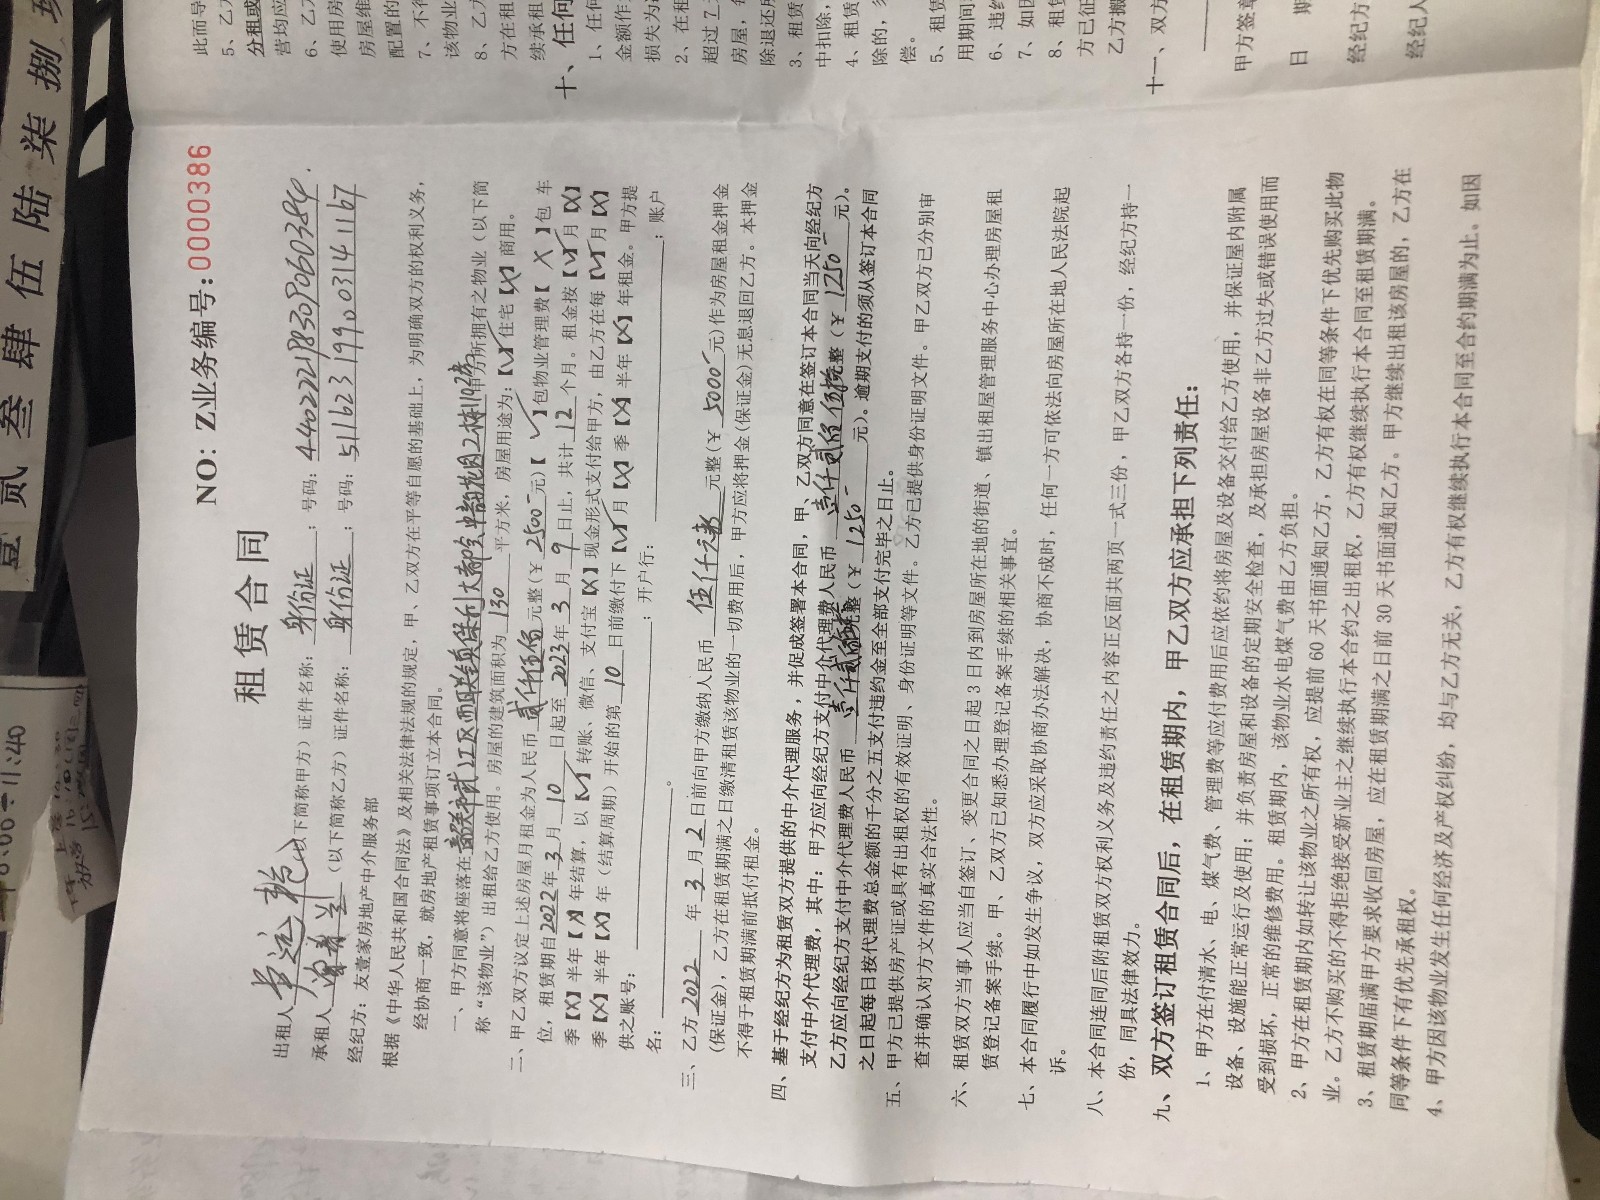 NO: Z业务编号:0000386
租赁合同
出租人 (以下简称甲方) 证件名称: 身份证 ; 号码:
承租人 (以下简称乙方) 证件名称: 身份证 ; 号码: 511623199003141167
经纪方: 友壹家房地产中介服务部
根据《中华人民共和国合同法》及相关法律法规的规定, 甲、乙双方在平等自愿的基础上, 为明确双方的权利义务,
经协商一致, 就房地产租赁事项订立本合同。
一、甲方同意将座落在 甲方所拥有之物业 (以下简
称“该物业”) 出租给乙方使用。房屋的建筑面积为 130 平方米, 房屋用途为: 【√】住宅【X】商用。
二、甲乙双方议定上述房屋月租金为人民币 贰仟伍佰 元整(¥ 2500 元)【√】包物业管理费【X】包车
位, 租赁期自2022年 3 月 10 日起至 2023年 3 月 9 日止, 共计 12 个月。租金按【√】月【X】
季【X】半年【X】年结算, 以【√】转账、微信、支付宝【X】现金形式支付给甲方, 由乙方在每【√】月【X】
季【X】半年【X】年 (结算周期) 开始的第 10 日前缴付下【√】月【X】季【X】半年【X】年租金。甲方提
供之账号: ; 开户行: ; 账户
名: 。
三、乙方2022 年 3 月 2 日前向甲方缴纳人民币 伍仟元整 元整(¥ 5000 元)作为房屋租金押金
(保证金), 乙方在租赁期满之日缴清租赁该物业的一切费用后, 甲方应将押金(保证金)无息退回乙方。本押金
不得于租赁期满前抵付租金。
四、基于经纪方为租赁双方提供的中介代理服务, 并促成签署本合同, 甲、乙双方同意在签订本合同当天向经纪方
支付中介代理费, 其中: 甲方应向经纪方支付中介代理费人民币 壹仟贰佰伍拾元整 (¥ 1250 元)。
乙方应向经纪方支付中介代理费人民币 壹仟贰佰伍拾元整 (¥ 1250 元)。逾期支付的须从签订本合同
之日起每日按代理费总金额的千分之五支付违约金至全部支付完毕之日止。
五、甲方已提供房产证或具有出租权的有效证明、身份证明等文件。乙方已提供身份证明文件。甲乙双方已分别审
查并确认对方文件的真实合法性。
六、租赁双方当事人应当自签订、变更合同之日起 3 日内到房屋所在地的街道、镇出租屋管理服务中心办理房屋租
赁登记备案手续。甲、乙双方已知悉办理登记备案手续的相关事宜。
七、本合同履行中如发生争议, 双方应采取协商办法解决, 协商不成时, 任何一方可依法向房屋所在地人民法院起
诉。
八、本合同连同后附租赁双方权利义务及违约责任之内容正反面共两页一式三份, 甲乙双方各持一份, 经纪方持一
份, 同具法律效力。
九、双方签订租赁合同后, 在租赁期内, 甲乙双方应承担下列责任:
1、甲方在付清水、电、煤气费、管理费等应付费用后应依约将房屋及设备交付给乙方使用, 并保证屋内附属
设备、设施能正常运行及使用; 并负责房屋和设备的定期安全检查, 及承担房屋设备非乙方过失或错误使用而
受到损坏, 正常的维修费用。租赁期内, 该物业水电煤气费由乙方负担。
2、甲方在租赁期内如转让该物业之所有权, 应提前 60 天书面通知乙方, 乙方有权在同等条件下优先购买此物
业。乙方不购买的不得拒绝接受新业主之继续执行本合约之出租权, 乙方有权继续执行本合同至租赁期满。
3、租赁期届满甲方要求收回房屋, 应在租赁期满之日前 30 天书面通知乙方。甲方继续出租该房屋的, 乙方在
同等条件下有优先承租权。
4、甲方因该物业发生任何经济及产权纠纷, 均与乙方无关, 乙方有权继续执行本合同至合约期满为止。如因
此而导
5、乙方
分租或
营均应
6、乙方
使用房
房屋维
配置的
7、不得
该物业
8、乙方
方在租
续承租
十、任何
1、任何
金额作
损失为
2、在租
超过 7
房屋,
除退还
3、租赁
中扣除,
4、租赁
除的,
偿。
5、租赁
用期间
6、违约
7、如因
8、租赁
方已征
乙方搬
十一、双方
甲方签章
日 期
经纪方
经纪人
壹 贰 叁 肆 伍 陆 柒 捌